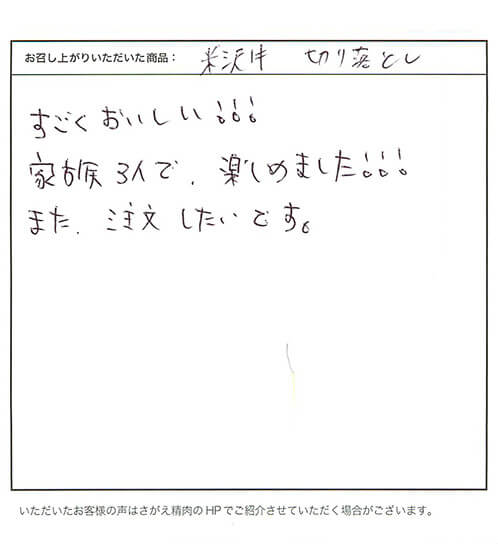 お召し上がりいただいた商品： 米沢牛 切り落とし
すごくおいしい!!!
家族3人で、楽しめました!!!
また、注文したいです。
いただいたお客様の声はさがえ精肉のHPでご紹介させていただく場合がございます。